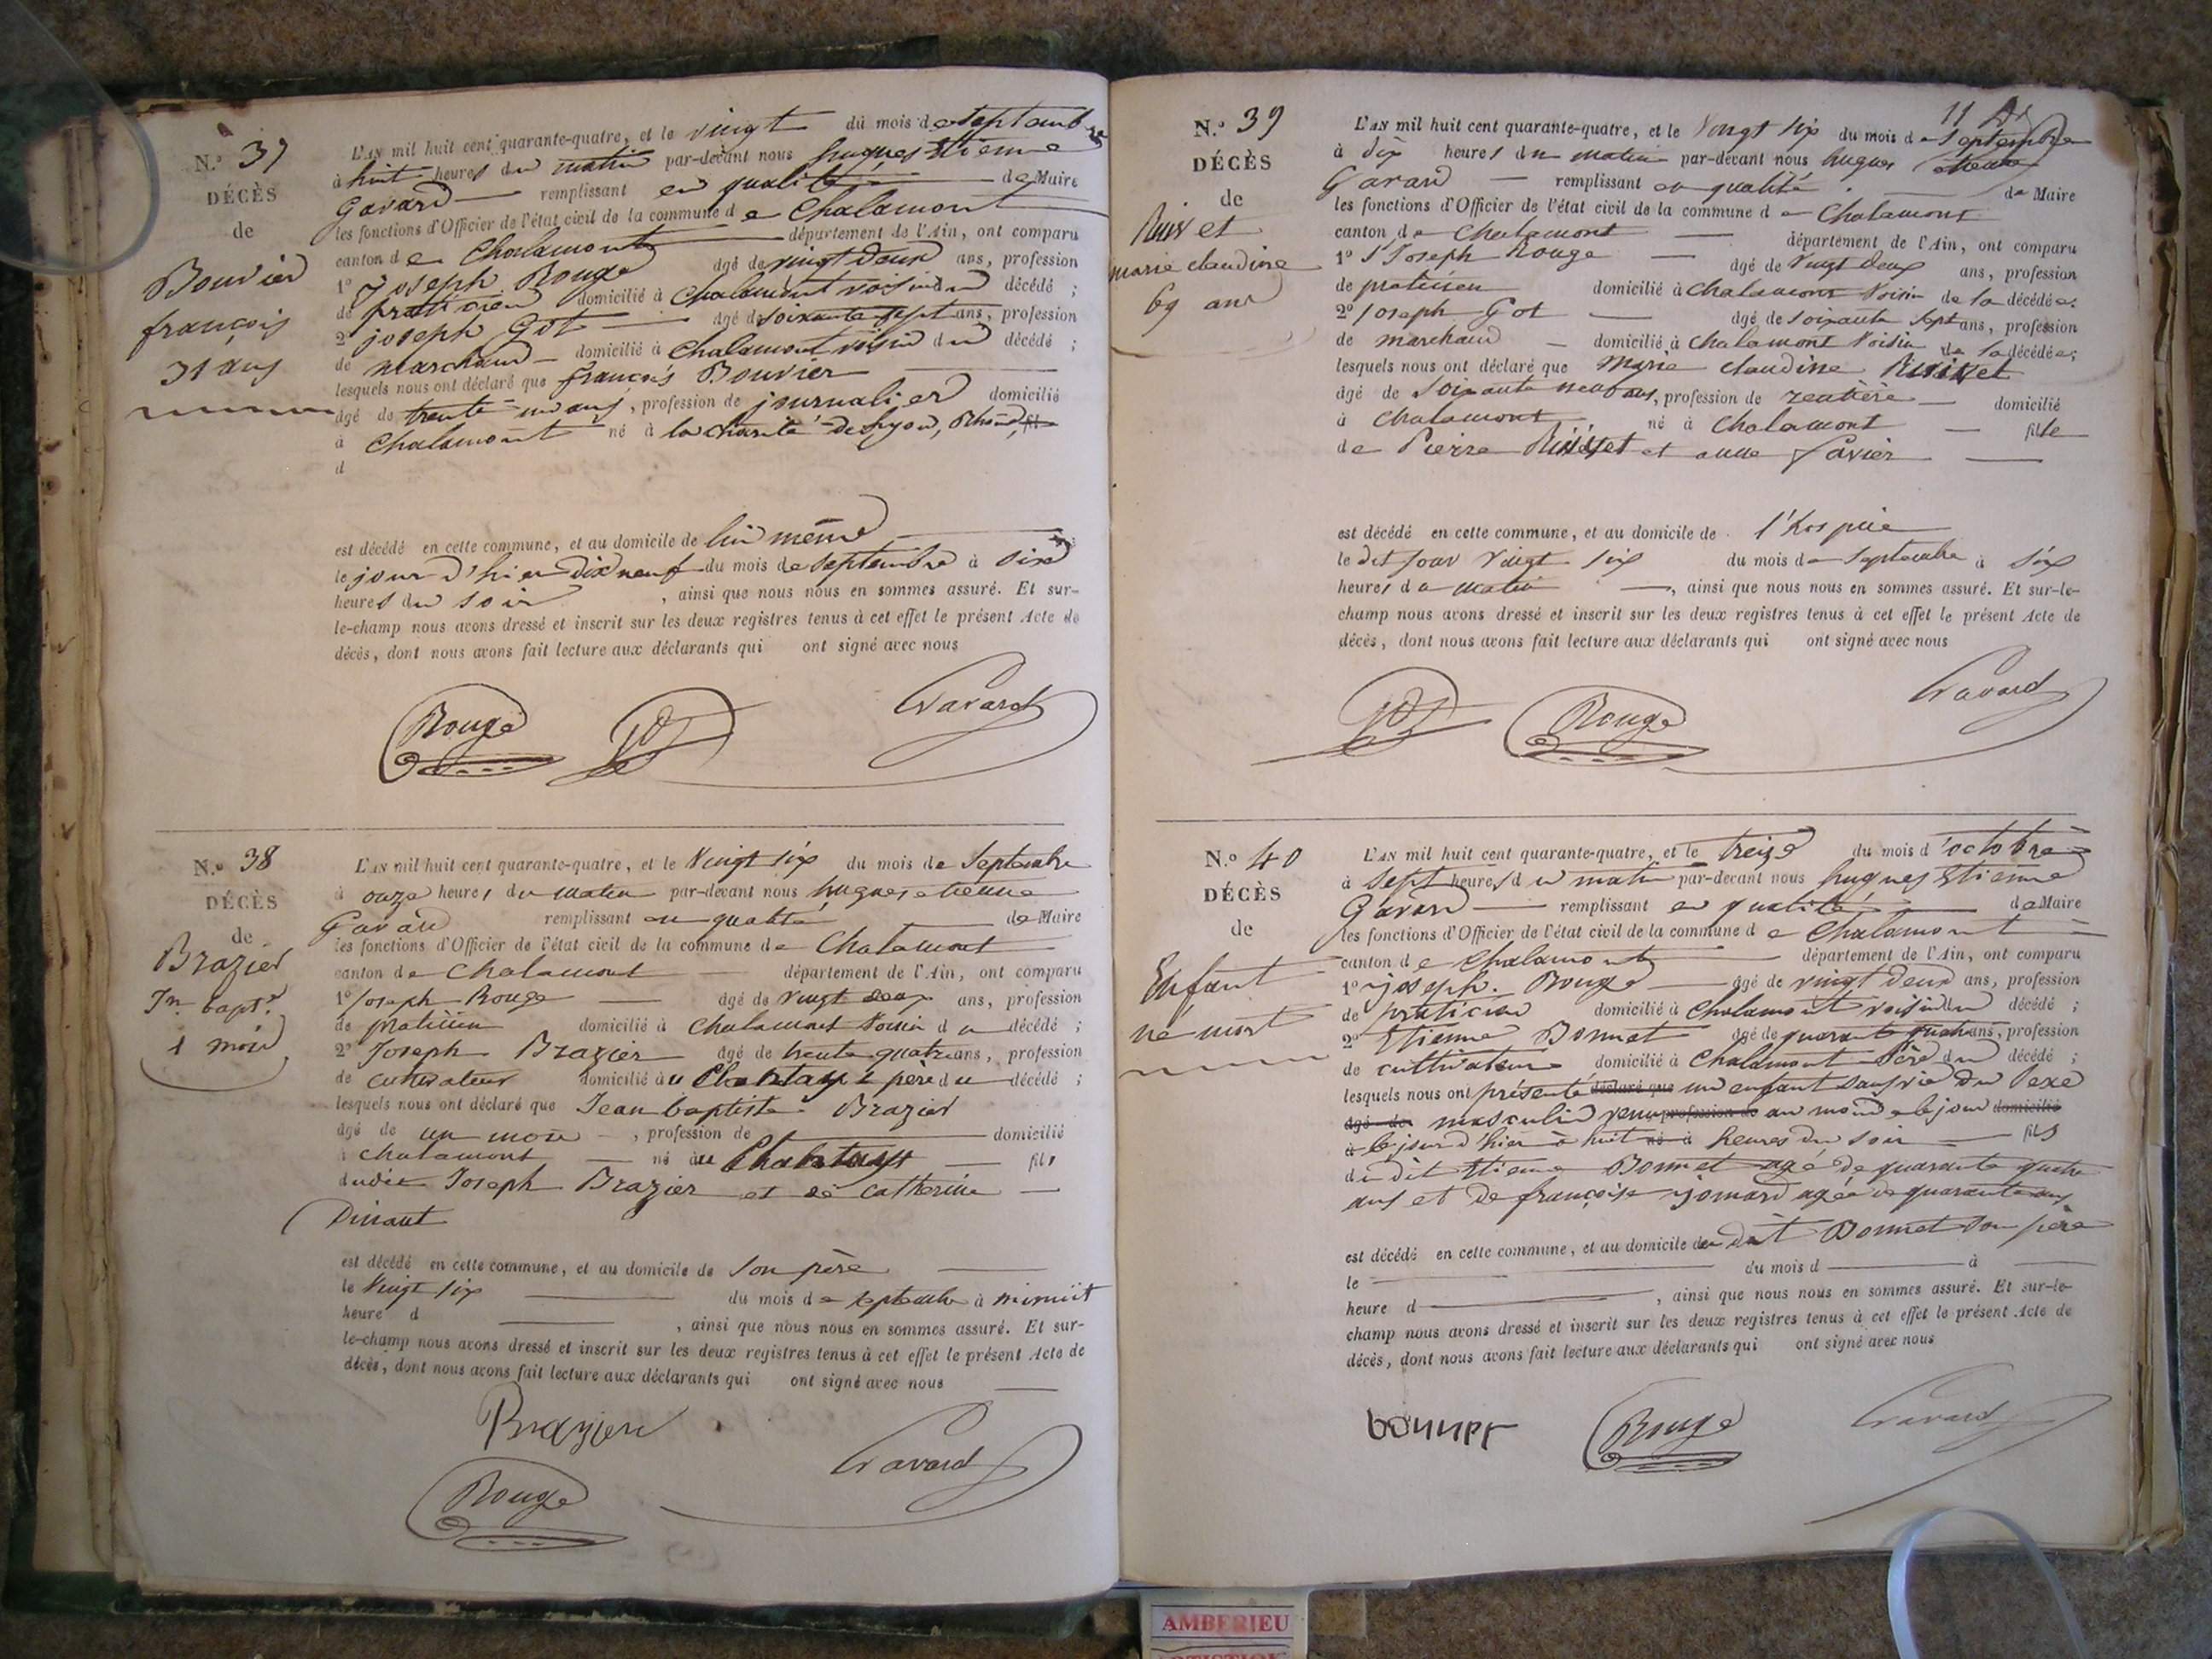 N.° 37
DÉCÈS
de
Bouvier
françois
31 ans
L'AN mil huit cent quarante-quatre, et le vingt du mois de septembre
à huit heures du matin par-devant nous hugues Etienne
Gavard remplissant en qualité de Maire
les fonctions d'Officier de l'état civil de la commune de Chalamont
canton de Chalamont département de l'Ain, ont comparu
1° Joseph Rouge âgé de vingt deux ans, profession
de praticien domicilié à Chalamont voisin du décédé ;
2° joseph Got âgé de soixante sept ans, profession
de marchand domicilié à Chalamont voisin du décédé ;
lesquels nous ont déclaré que françois Bouvier
âgé de trente un ans, profession de journalier domicilié
à Chalamont né à la charité de Lyon, Rhône, fil
d
est décédé en cette commune, et au domicile de lui même
le jour d'hier dix neuf du mois de septembre à six
heures du soir, ainsi que nous nous en sommes assuré. Et sur-
le-champ nous avons dressé et inscrit sur les deux registres tenus à cet effet le présent Acte de
décès, dont nous avons fait lecture aux déclarants qui ont signé avec nous
Rouge Got Gavard
N.° 38
DÉCÈS
de
Brazier
Jn. bapt.
1 mois
L'AN mil huit cent quarante-quatre, et le Vingt six du mois de Septembre
à onze heures du matin par-devant nous hugues etienne
Gavard remplissant en qualité de Maire
les fonctions d'Officier de l'état civil de la commune de Chalamont
canton de Chalamont département de l'Ain, ont comparu
1° Joseph Rouge âgé de vingt deux ans, profession
de praticien domicilié à Chalamont Voisin du décédé ;
2° Joseph Brazier âgé de trente quatre ans, profession
de cultivateur domicilié au père du décédé ;
lesquels nous ont déclaré que Jean baptiste Brazier
âgé de un mois, profession de domicilié
à chalamont né au fils
dudit Joseph Brazier et de Catherine
est décédé en cette commune, et au domicile de son père
le Vingt six du mois de septembre à minuit
heure d , ainsi que nous nous en sommes assuré. Et sur-
le-champ nous avons dressé et inscrit sur les deux registres tenus à cet effet le présent Acte de
décès, dont nous avons fait lecture aux déclarants qui ont signé avec nous
Brazier
Gavard
Rouge
11
N.° 39
DÉCÈS
de
marie claudine
69 ans
L'AN mil huit cent quarante-quatre, et le Vingt six du mois de Septembre
à dix heures du matin par-devant nous hugues etienne
Gavard remplissant en qualité de Maire
les fonctions d'Officier de l'état civil de la commune de Chalamont
canton de Chalamont département de l'Ain, ont comparu
1° Joseph Rouge âgé de Vingt deux ans, profession
de praticien domicilié à Chalamont Voisin de la décédée ;
2° Joseph Got âgé de soixante sept ans, profession
de marchand domicilié à Chalamont Voisin de la décédée ;
lesquels nous ont déclaré que Marie claudine
âgé de soixante neuf ans, profession de rentière domicilié
à Chalamont né à Chalamont fille
de Pierre et anne favier
est décédé en cette commune, et au domicile de l'hospice
le dit jour Vingt six du mois de septembre à six
heures du matin, ainsi que nous nous en sommes assuré. Et sur-le-
champ nous avons dressé et inscrit sur les deux registres tenus à cet effet le présent Acte de
décès, dont nous avons fait lecture aux déclarants qui ont signé avec nous
Got Rouge Gavard
N.° 40
DÉCÈS
de
Enfant
né mort
L'AN mil huit cent quarante-quatre, et le treize du mois d'octobre
à sept heures du matin par-devant nous hugues Etienne
Gavard remplissant en qualité de Maire
les fonctions d'Officier de l'état civil de la commune de Chalamont
canton de Chalamont département de l'Ain, ont comparu
1° joseph Rouge âgé de vingt deux ans, profession
de praticien domicilié à Chalamont voisin du décédé ;
2° Etienne Bonnet âgé de quarante quatre ans, profession
de cultivateur domicilié à Chalamont Père du décédé ;
lesquels nous ont présenté déclaré que un enfant sans vie du sexe
âgé de masculin venu profession de au monde le jour domicilié
à le jour d'hier à huit né à heures du soir fils
du dit Etienne Bonnet agé de quarante quatre
ans et de françoise jomard agée de quarante ans
est décédé en cette commune, et au domicile du dit Bonnet son père
le du mois d à
heure d , ainsi que nous nous en sommes assuré. Et sur-le-
champ nous avons dressé et inscrit sur les deux registres tenus à cet effet le présent Acte de
décès, dont nous avons fait lecture aux déclarants qui ont signé avec nous
Rouge Gavard
AMBERIEU